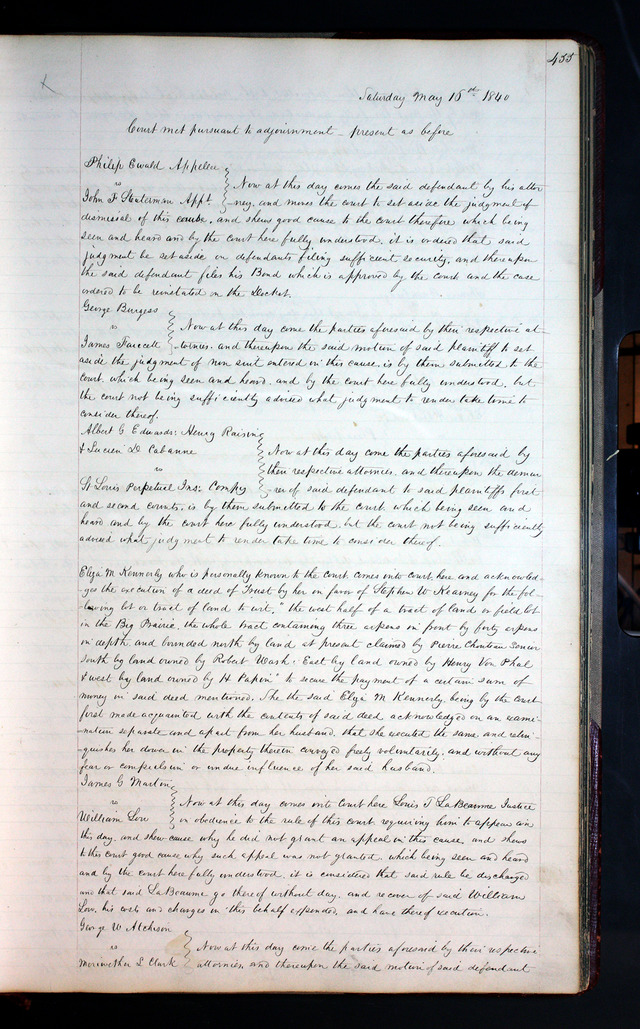 455
Saturday May 16th 1840
Court met pursuant to adjournment - present as before
Philip Ewald Appelee
vs
John F Stuterman Appt
Now at this day comes the said defendant by his attor
ney, and moves the court to set aside the judgment of
dismissal of this cause, and shews good cause to the court therefore which being
seen and heard and by the court here fully understood, it is ordered that said
judgment be set aside on defendants filing sufficient security, and thereupon
the said defendant files his Bond which is approved by the court and the case
ordered to be reinstated on the Docket.
George Burgess
vs
James Faucett
Now at this day come the parties aforesaid by their respective at
-tornies, and thereupon the said motion of said plaintiff to set
aside the judgment of non suit entered in this cause, is by them submitted to the
court, which being seen and heard, and by the court here fully understood, but
the court not being sufficiently advised what judgment to render take time to
consider thereof.
Albert G Edwards: Henry Raisin
& Lucien D Cabanne
vs
St Louis Perpetual Ins: Compy
Now at this day come the parties aforesaid by
their respective attornies, and thereupon the demur
-rer of said defendant to said plaintiffs first
and second counts, is by them submitted to the court which being seen and
heard and by the court here fully understood but the court not being sufficiently
advised what judgment to render take time to consider thereof.
Eliza M Kennerly who is personally known to the court comes into court here and acknowled-
-ges the execution of a deed of Trust by her in favor of Stephen W Kearney for the fol-
-lowing lot or tract of land to wit, "the west half of a tract of land or field lot
in the Big Prairie, the whole tract containing three arpens in front by forty arpens
in depth and bounded north by land at present claimed by Pierre Chouteau Senior
South by land owned by Robert Wash: East by land owned by Henry Von Phul
& west by land owned by H Papin" to secure the payment of a certain sum of
money in said deed mentioned. She the said Eliza M Kennerly, being by the court
first made acquainted with the contents of said deed acknowledged on an exami-
-nation separate and apart from her husband, that she executed the same and relin-
-quishes her dower in the property therein conveyed freely voluntarily, and without any
fear or compulsion or undue influence of her said husband.
James G Martin
vs
William Low
Now at this day comes into court here Louis T LaBeaume Justice
in obedience to the rule of this court requiring him to appear on
this day, and shew cause why he did not grant an appeal in this cause, and shews
to this court good cause why such appeal was not granted, which being seen and heard
and by the court here fully understood, it is considered that said rule be discharged
and that said LaBeaume go thereof without day, and recover of said William
Low, his costs and charges in this behalf expended, and have thereof execution.
George W Atcheson
vs
Meriwether L Clark
Now at this day come the parties aforesaid by their respective
attornies, and thereupon the said motion of said defendant